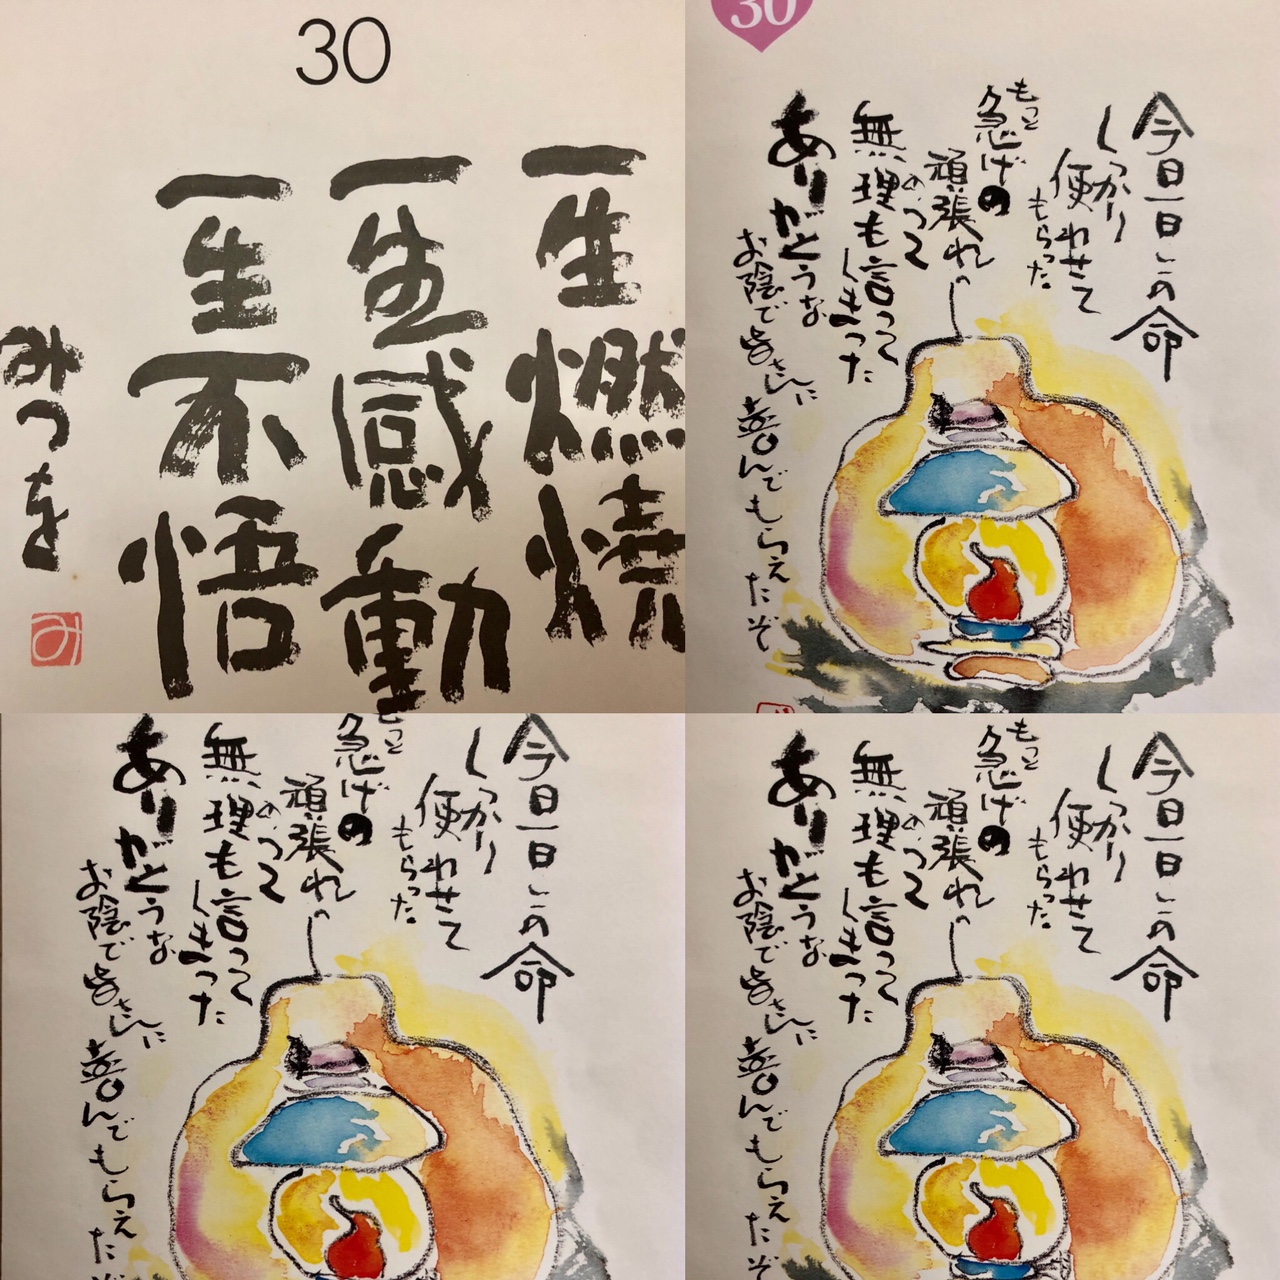 30
一生燃焼
一生感動
一生不悟
みつを
み
30
今日一日この命
しっかり
使わせて
もらった
もっと
急げの
頑張れ
のって
無理も言って
しまった
ありがとうな
お陰で皆さんに喜んでもらえたぞ
今日一日この命
しっかり
使わせて
もらった
もっと
急げの
頑張れ
のって
無理も言って
しまった
ありがとうな
お陰で皆さんに喜んでもらえたぞ
今日一日この命
しっかり
使わせて
もらった
もっと
急げの
頑張れ
のって
無理も言って
しまった
ありがとうな
お陰で皆さんに喜んでもらえたぞ